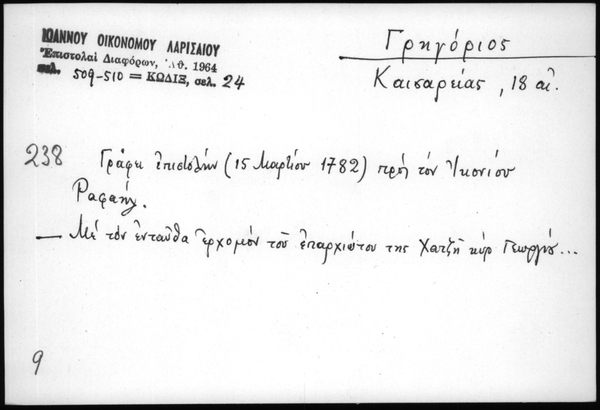 ΙΩΑΝΝΟΥ ΟΙΚΟΝΟΜΟΥ ΛΑΡΙΣΑΙΟΥ
Ἐπιστολαὶ Διαφόρων, Ἀθ. 1964
σελ. 509-510 = ΚΩΔΙΞ, σελ. 24
Γρηγόριος
Καισαρείας, 18 αἰ.
238 Γράφει ἐπιστολήν (15 Μαρτίου 1782) πρὸς τὸν Ἰκονίου
Ραφαήλ.
— Μὲ τὸν ἐνταῦθα ἐρχομόν τοῦ ἐπαρχιώτου της Χατζῆ κὺρ Γεωργίου...
9